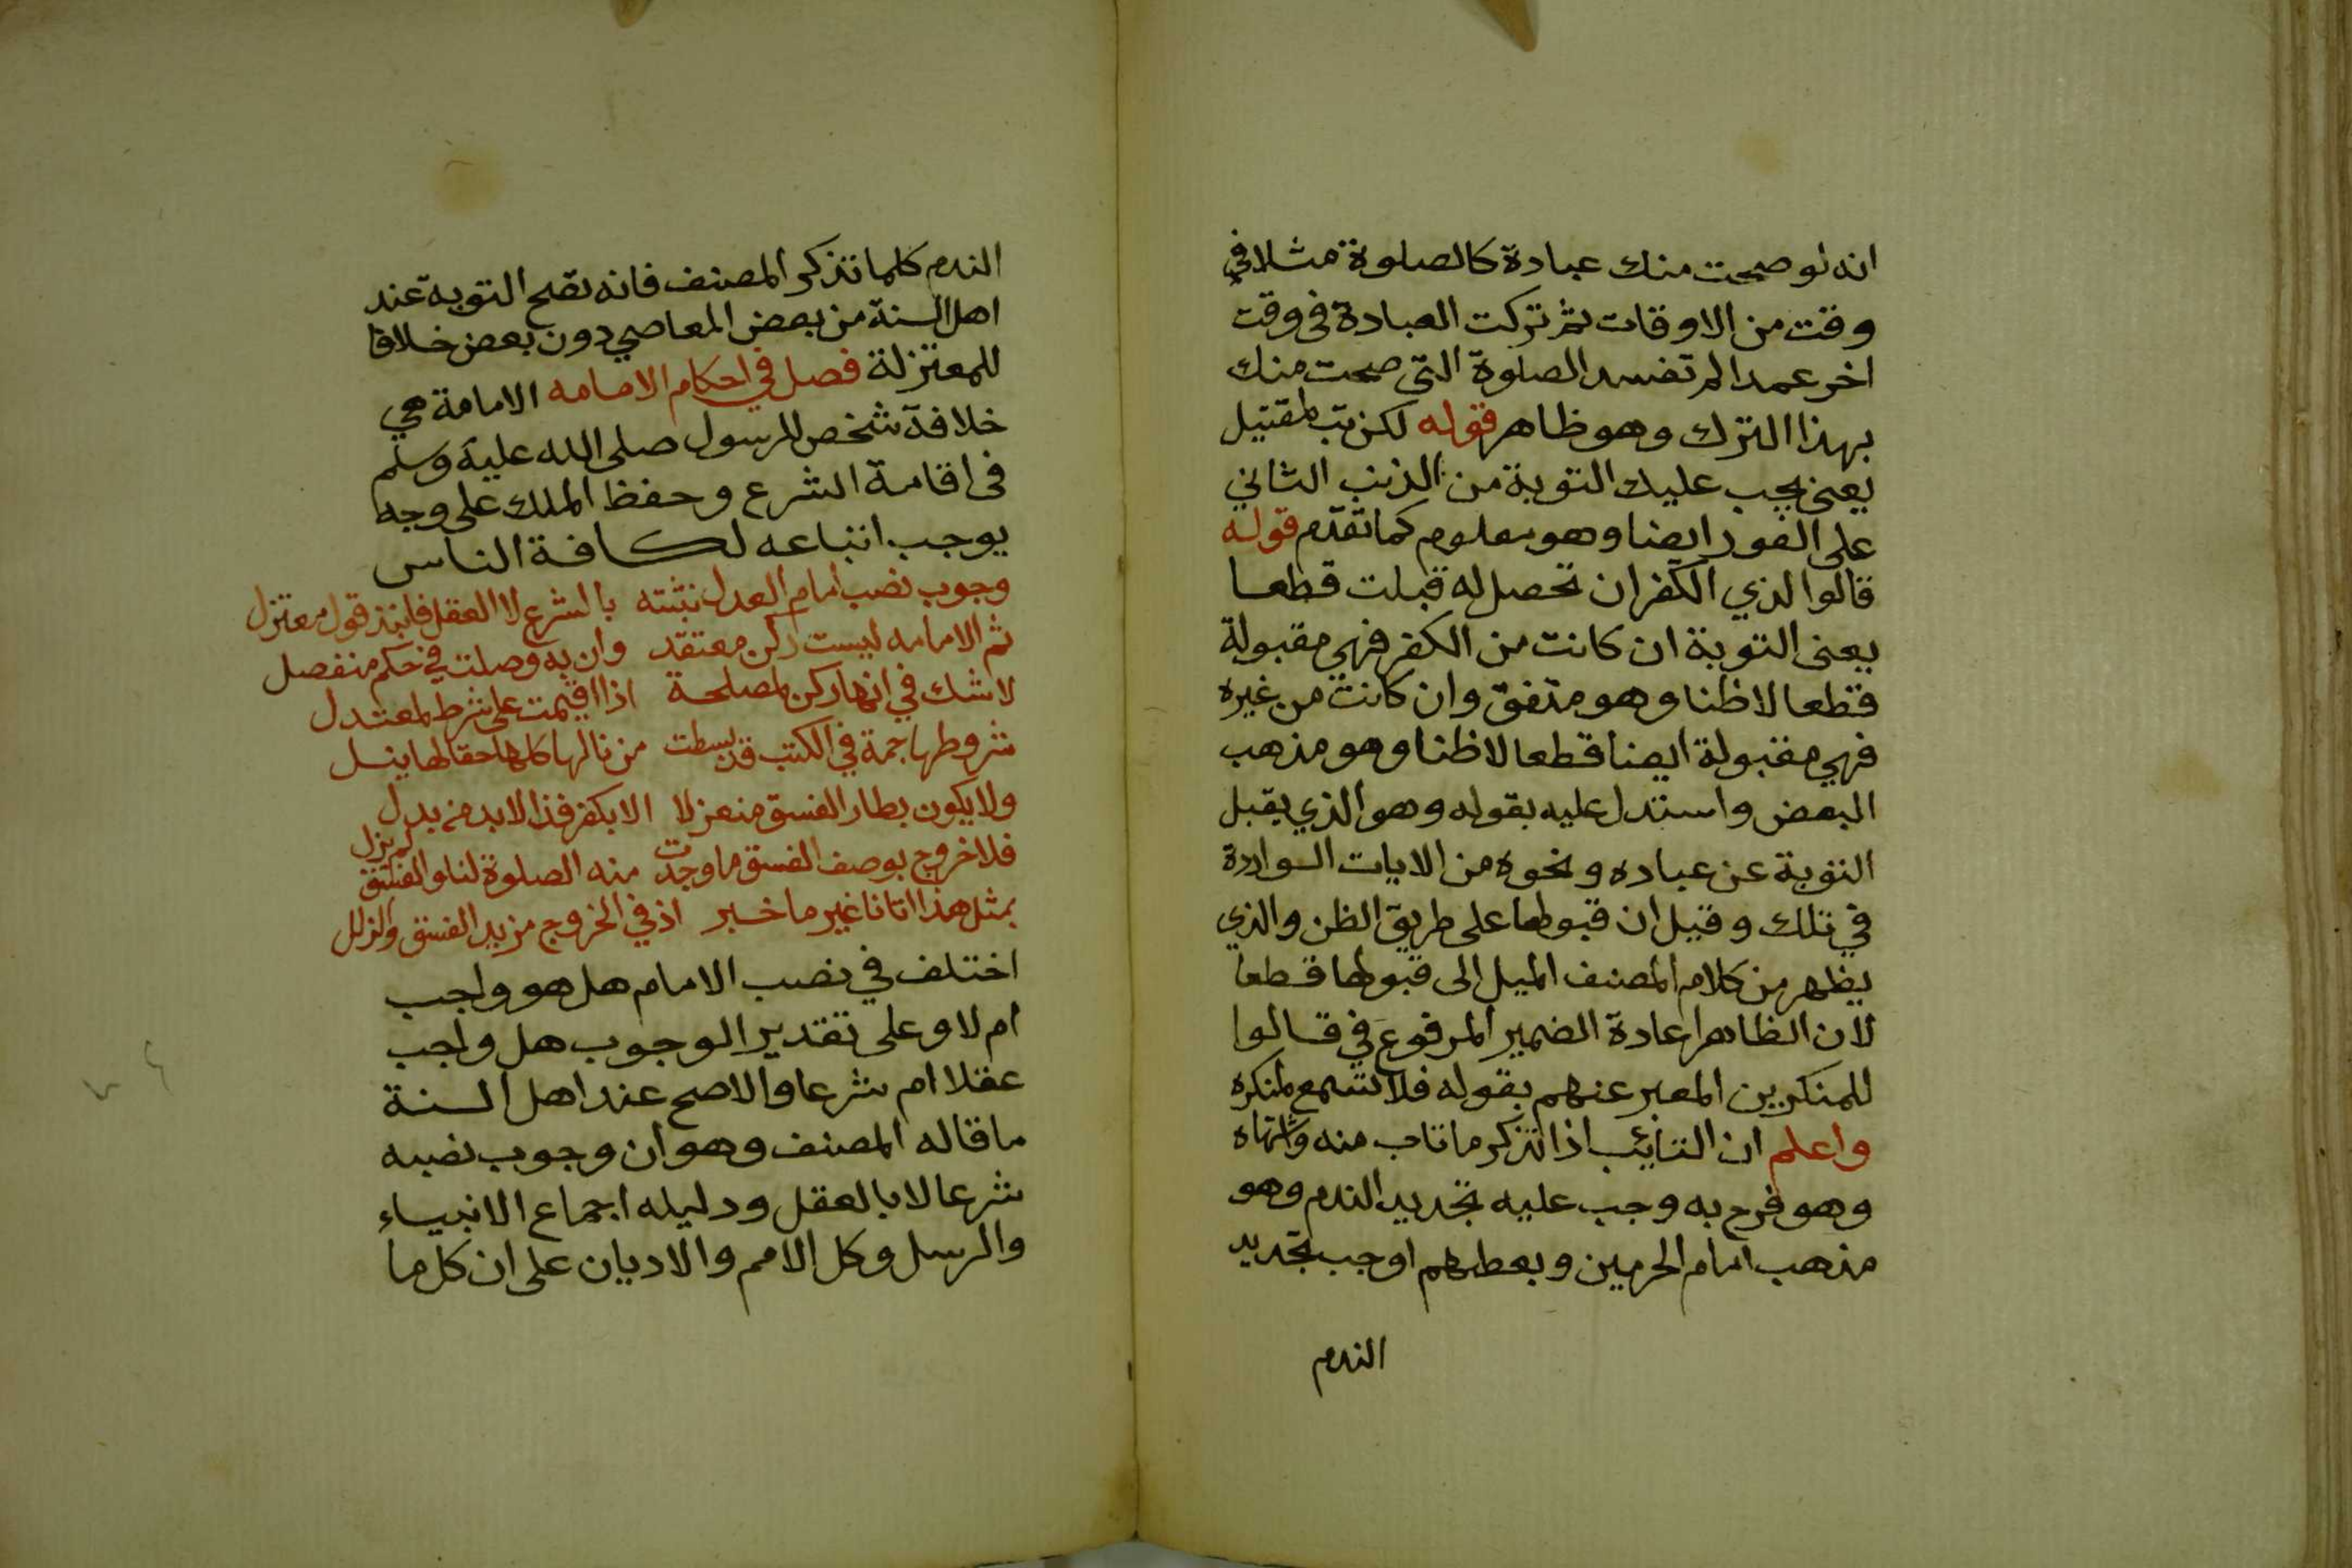 انه لو صحت منك عبادة كالصلوة مثلا في
وقت من الاوقات ثم تركت العبادة فى وقت
اخر عمدا لم تفسد الصلوة التى صحت منك
بهذا الترك وهو ظاهر قوله لكن تب
يعنى يجب عليك التوبة من الذنب الثاني
على الفور ايضا وهو معلوم كما تقدم قوله
قالوا لذي الكفر ان تحصل له قبلت قطعا
يعنى التوبة ان كانت من الكفر فهي مقبولة
قطعا لاظنا وهو متفق وان كانت من غيره
فهي مقبولة ايضا قطعا لاظنا وهو مذهب
البعض واستدل عليه بقوله وهو الذي يقبل
التوبة عن عباده ونحوه من الايات الواردة
في تلك وقيل ان قبولها على طريق الظن والذي
يظهر من كلام المصنف الميل الى قبولها قطعا
لان الظاهر اعادة الضمير المرفوع في قالوا
للمنكرين المعبر عنهم بقوله فلا تسمع لمنكره
واعلم ان التائب اذا تذكر ما تاب منه واشتهاه
وهو فرح به وجب عليه تجديد الندم وهو
مذهب امام الحرمين وبعضهم اوجب تجديد
الندم
الندم كلما تذكر المصنف فانه تصح التوبة عند
اهل السنة من بعض المعاصي دون بعض خلافا
للمعتزلة فصل في احكام الامامه الامامة هي
خلافة شخص للرسول صلى الله عليه وسلم
فى اقامة الشرع وحفظ الملك على وجه
يوجب اتباعه لكافة الناس
وجوب نصب امام العدل نثبته بالشرع لا العقل فانبذ قول معتزل
ثم الامامه ليست ركن معتقد وان به وصلت في حكم منفصل
لاشك في انها ركن لمصلحة اذا اقيمت على شرط لمعتدل
شروطها جمة في الكتب قد بسطت من نالها كلها حقا لها ينل
ولا يكون بطار الفسق منعزلا الا بكفر فذا لابد من بدل
فلا خروج بوصف الفسق ما وجدت منه الصلوة لنا لو الفسق لم يزل
بمثل هذا اتانا غير ما خبر اذ في الخروج مزيد الفسق والزلل
اختلف في نصب الامام هل هو واجب
ام لا وعلى تقدير الوجوب هل واجب
عقلا ام شرعا والاصح عند اهل السنة
ما قاله المصنف وهو ان وجوب نصبه
شرعا لا بالعقل ودليله اجماع الانبياء
والرسل وكل الامم والاديان على ان كل ما